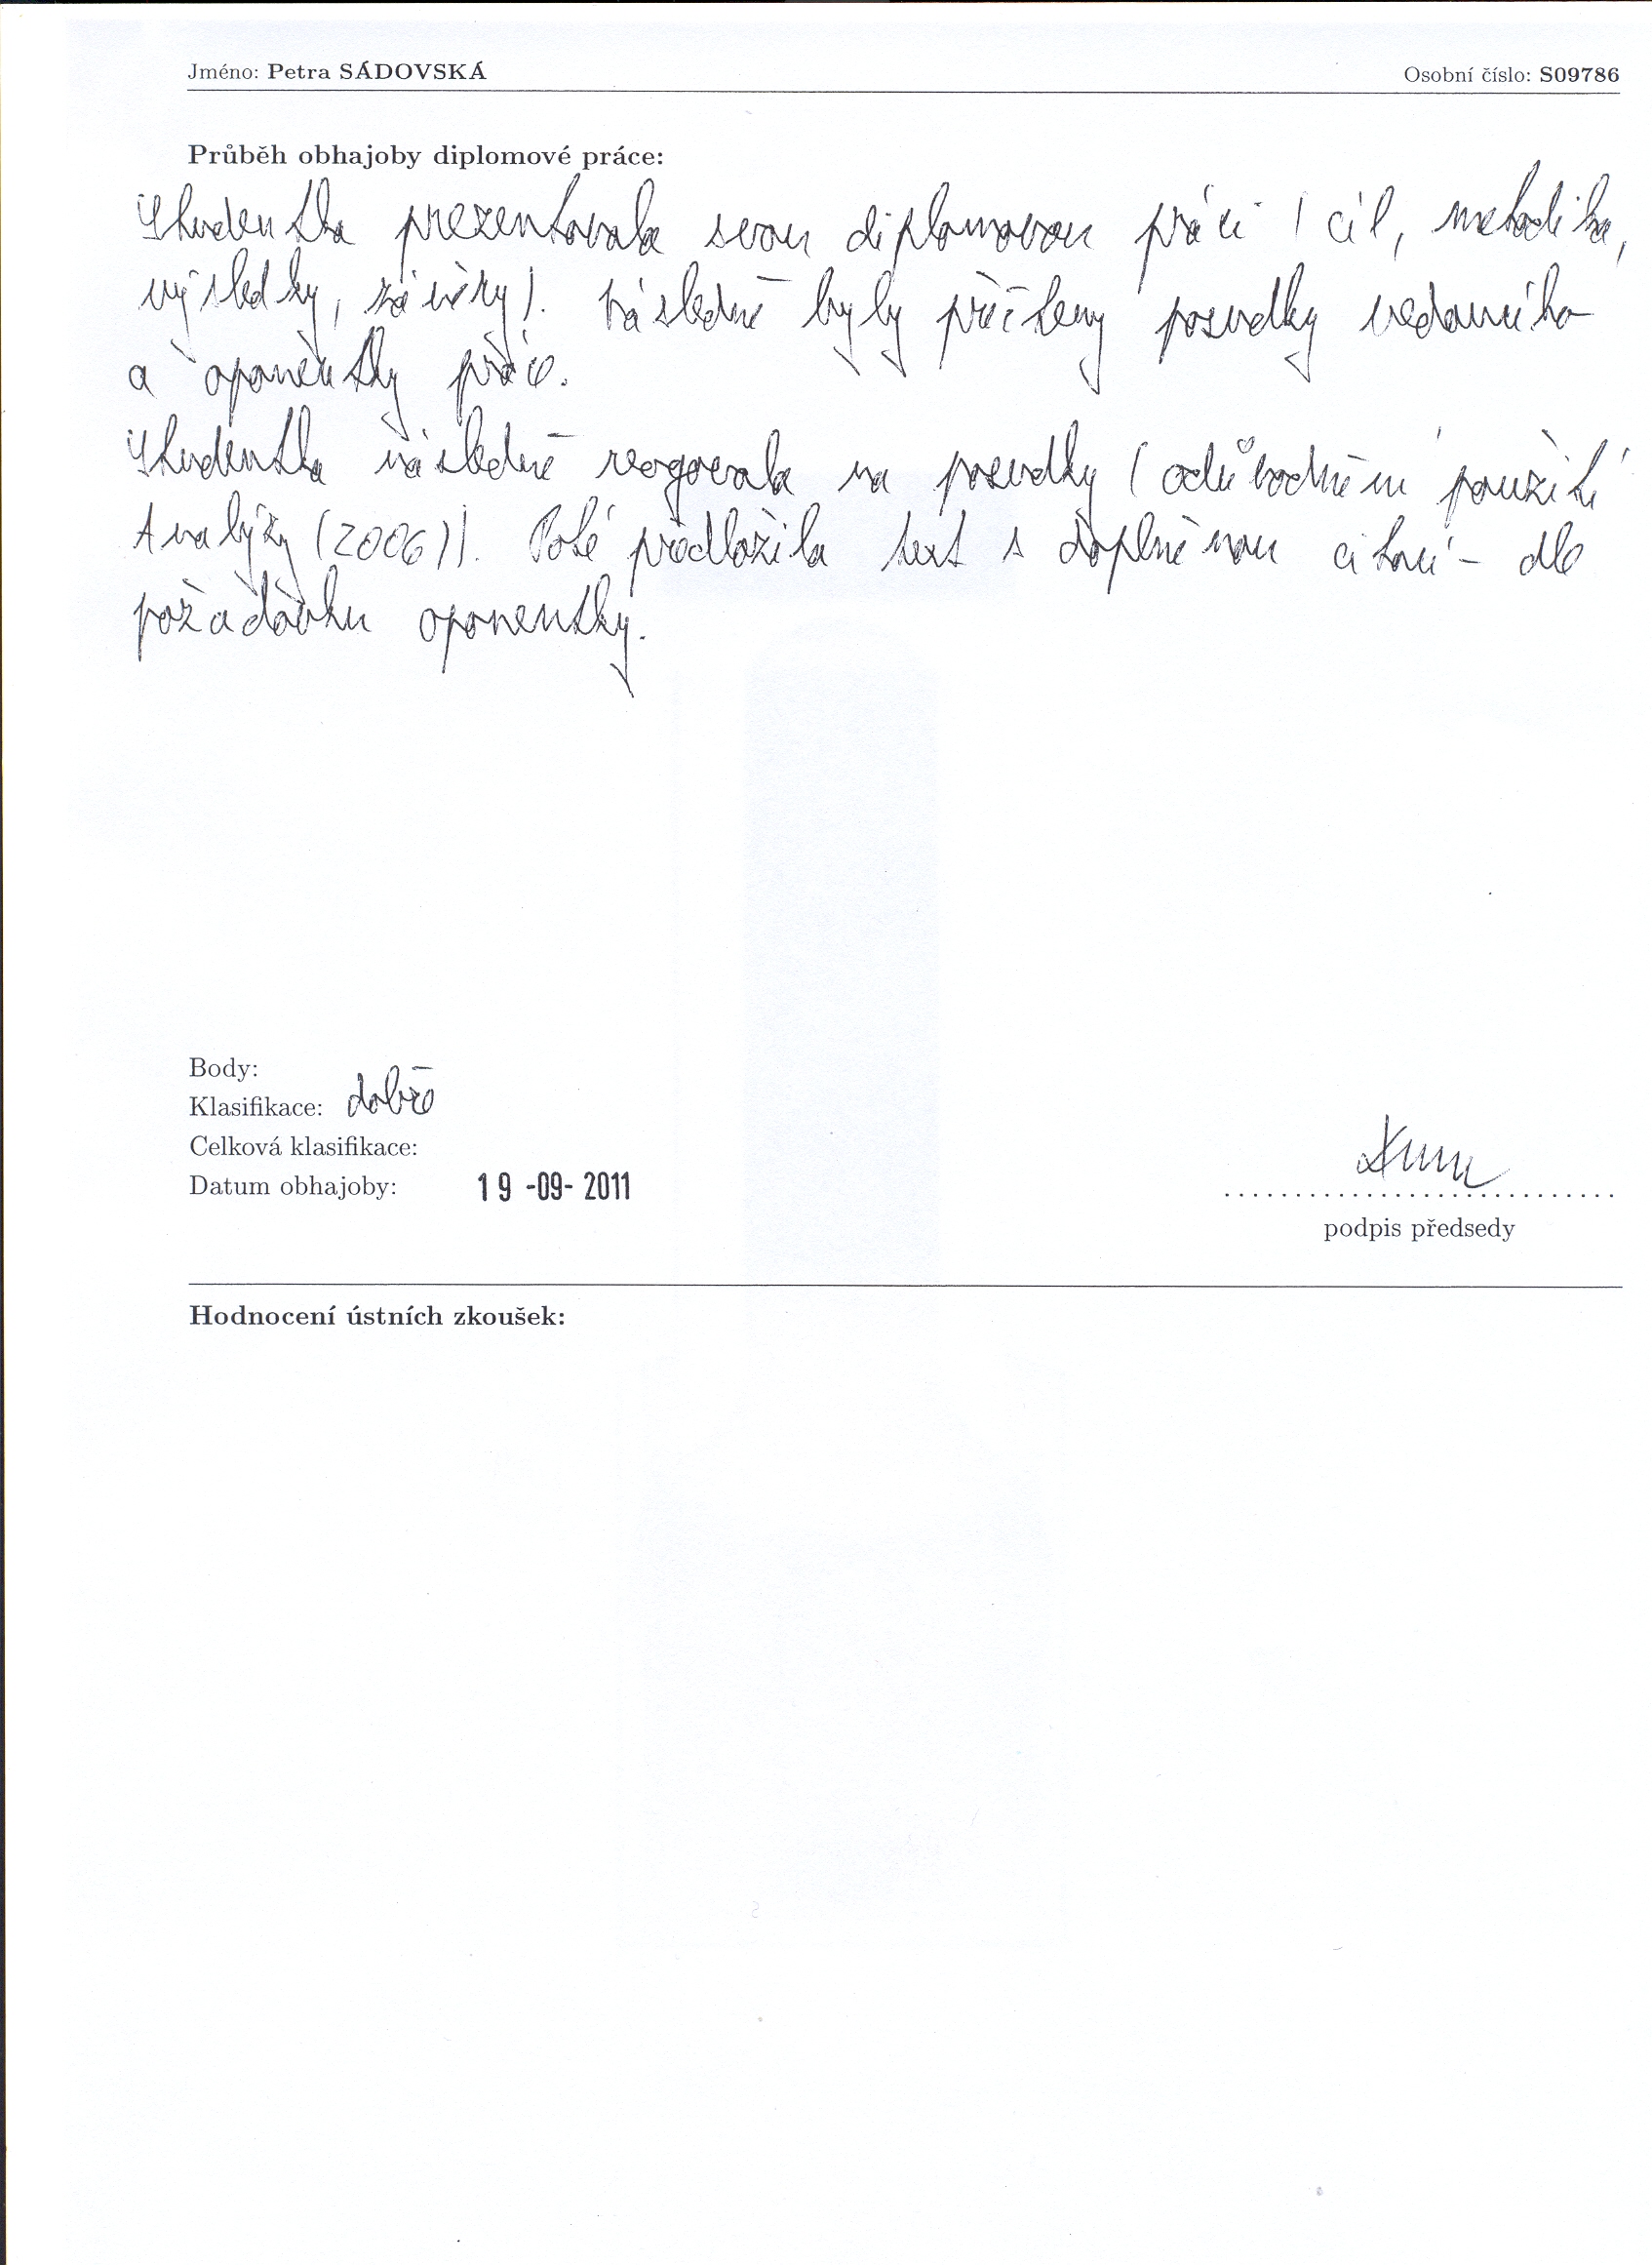 Jméno: Petra SÁDOVSKÁ Osobní číslo: S09786
Průběh obhajoby diplomové práce:
Studentka prezentovala svou diplomovou práci (cíl, metodika,
výsledky, závěry). Následně byly přečteny posudky vedoucího
a oponentky práce.
Studentka následně reagovala na posudky (odůvodnění použití
Analýzy (2006)). Poté předložila text s doplněnou citací – dle
požadavku oponentky.
Body:
Klasifikace: dobře
Celková klasifikace:
Datum obhajoby: 19 -09- 2011
podpis předsedy
Hodnocení ústních zkoušek: